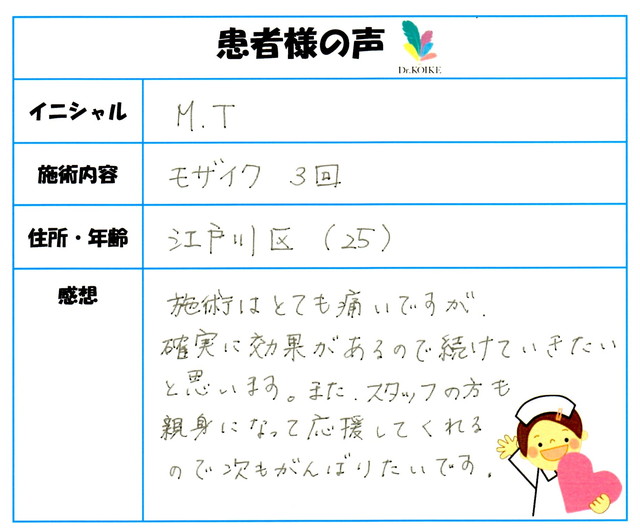 患者様の声
Dr.KOIKE
イニシャル M.T
施術内容 モザイク 3回
住所・年齢 江戸川区 (25)
感想 施術はとても痛いですが、
確実に効果があるので続けていきたい
と思います。また、スタッフの方も
親身になって応援してくれる
ので次もがんばりたいです。